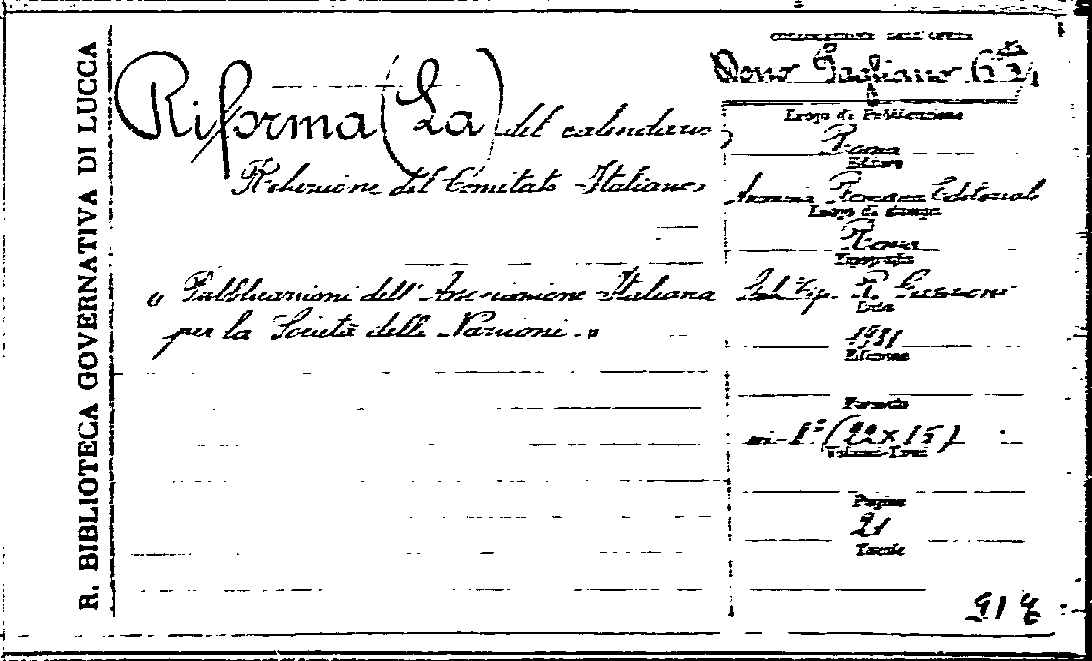 R. BIBLIOTECA GOVERNATIVA DI LUCCA
Riforma (La) del calendario
Relazione del Comitato Italiano
" Pubblicazioni dell'Associazione Italiana
per la Società delle Nazioni. "
COLLOCAZIONE DELL'OPERA
Dono Gagliano
Luogo di Pubblicazione
Roma
Editore
Anonima Romana Editoriale
Luogo di stampa
Roma
Tipografia
Tip.
Data
1931
Edizione
Formato
in-8° (22 x 15)
Volumi-Tomi
Pagine
21
Tavole